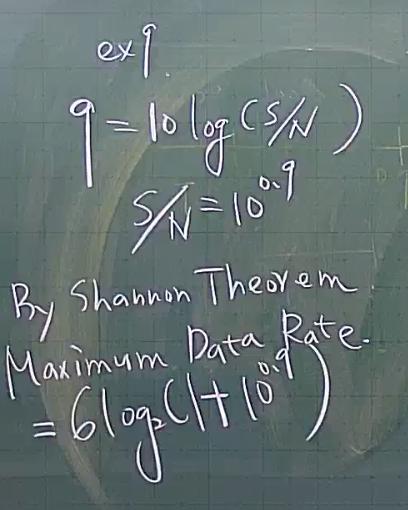 ex 9.
9 = 10 log (S/N)
S/N = 10^0.9
By Shannon Theorem
Maximum Data Rate.
= 6 log₂(1 + 10^0.9)